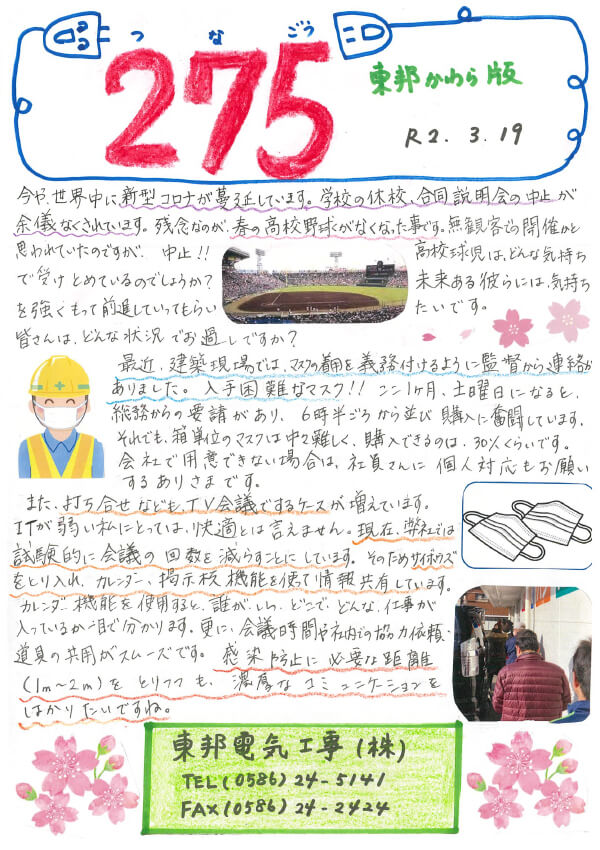 つなごう
275
東邦かわら版
R2.3.19
今や、世界中に新型コロナが蔓延しています。学校の休校、合同説明会の中止が
余儀なくされています。残念なのが、春の高校野球がなくなった事です。無観客での開催かと
思われていたのですが、中止!! 高校球児は、どんな気持ち
で受けとめているのでしょうか? 未来ある彼らには、気持ち
を強くもって前進していってもらいたいです。
皆さんは、どんな状況でお過しですか?
最近、建築現場では、マスクの着用を義務付けるように監督から連絡が
ありました。入手困難なマスク!! ここ1ヶ月、土曜日になると、
総務からの要請があり、6時半ごろから並び購入に奮闘しています。
それでも、箱単位のマスクは中々難しく、購入できるのは、30%くらいです。
会社で用意できない場合は、社員さんに個人対応もお願い
するありさまです。
また、打ち合せなども、TV会議でするケースが増えています。
ITが弱い私にとっては、快適とは言えません。現在、弊社では
試験的に会議の回数を減らすことにしています。そのためサイボウズ
をとり入れ、カレンダー、掲示板機能を使って情報共有しています。
カレンダー機能を使用すると、誰が、いつ、どこで、どんな、仕事が
入っているか一目で分かります。更に、会議時間や社内の協力依頼・
道具の共用がスムーズです。感染防止に必要な距離
(1m~2m)をとりつつも、濃厚なコミュニケーションを
はかりたいですね。
東邦電気工事(株)
TEL(0586)24-5141
FAX(0586)24-2424